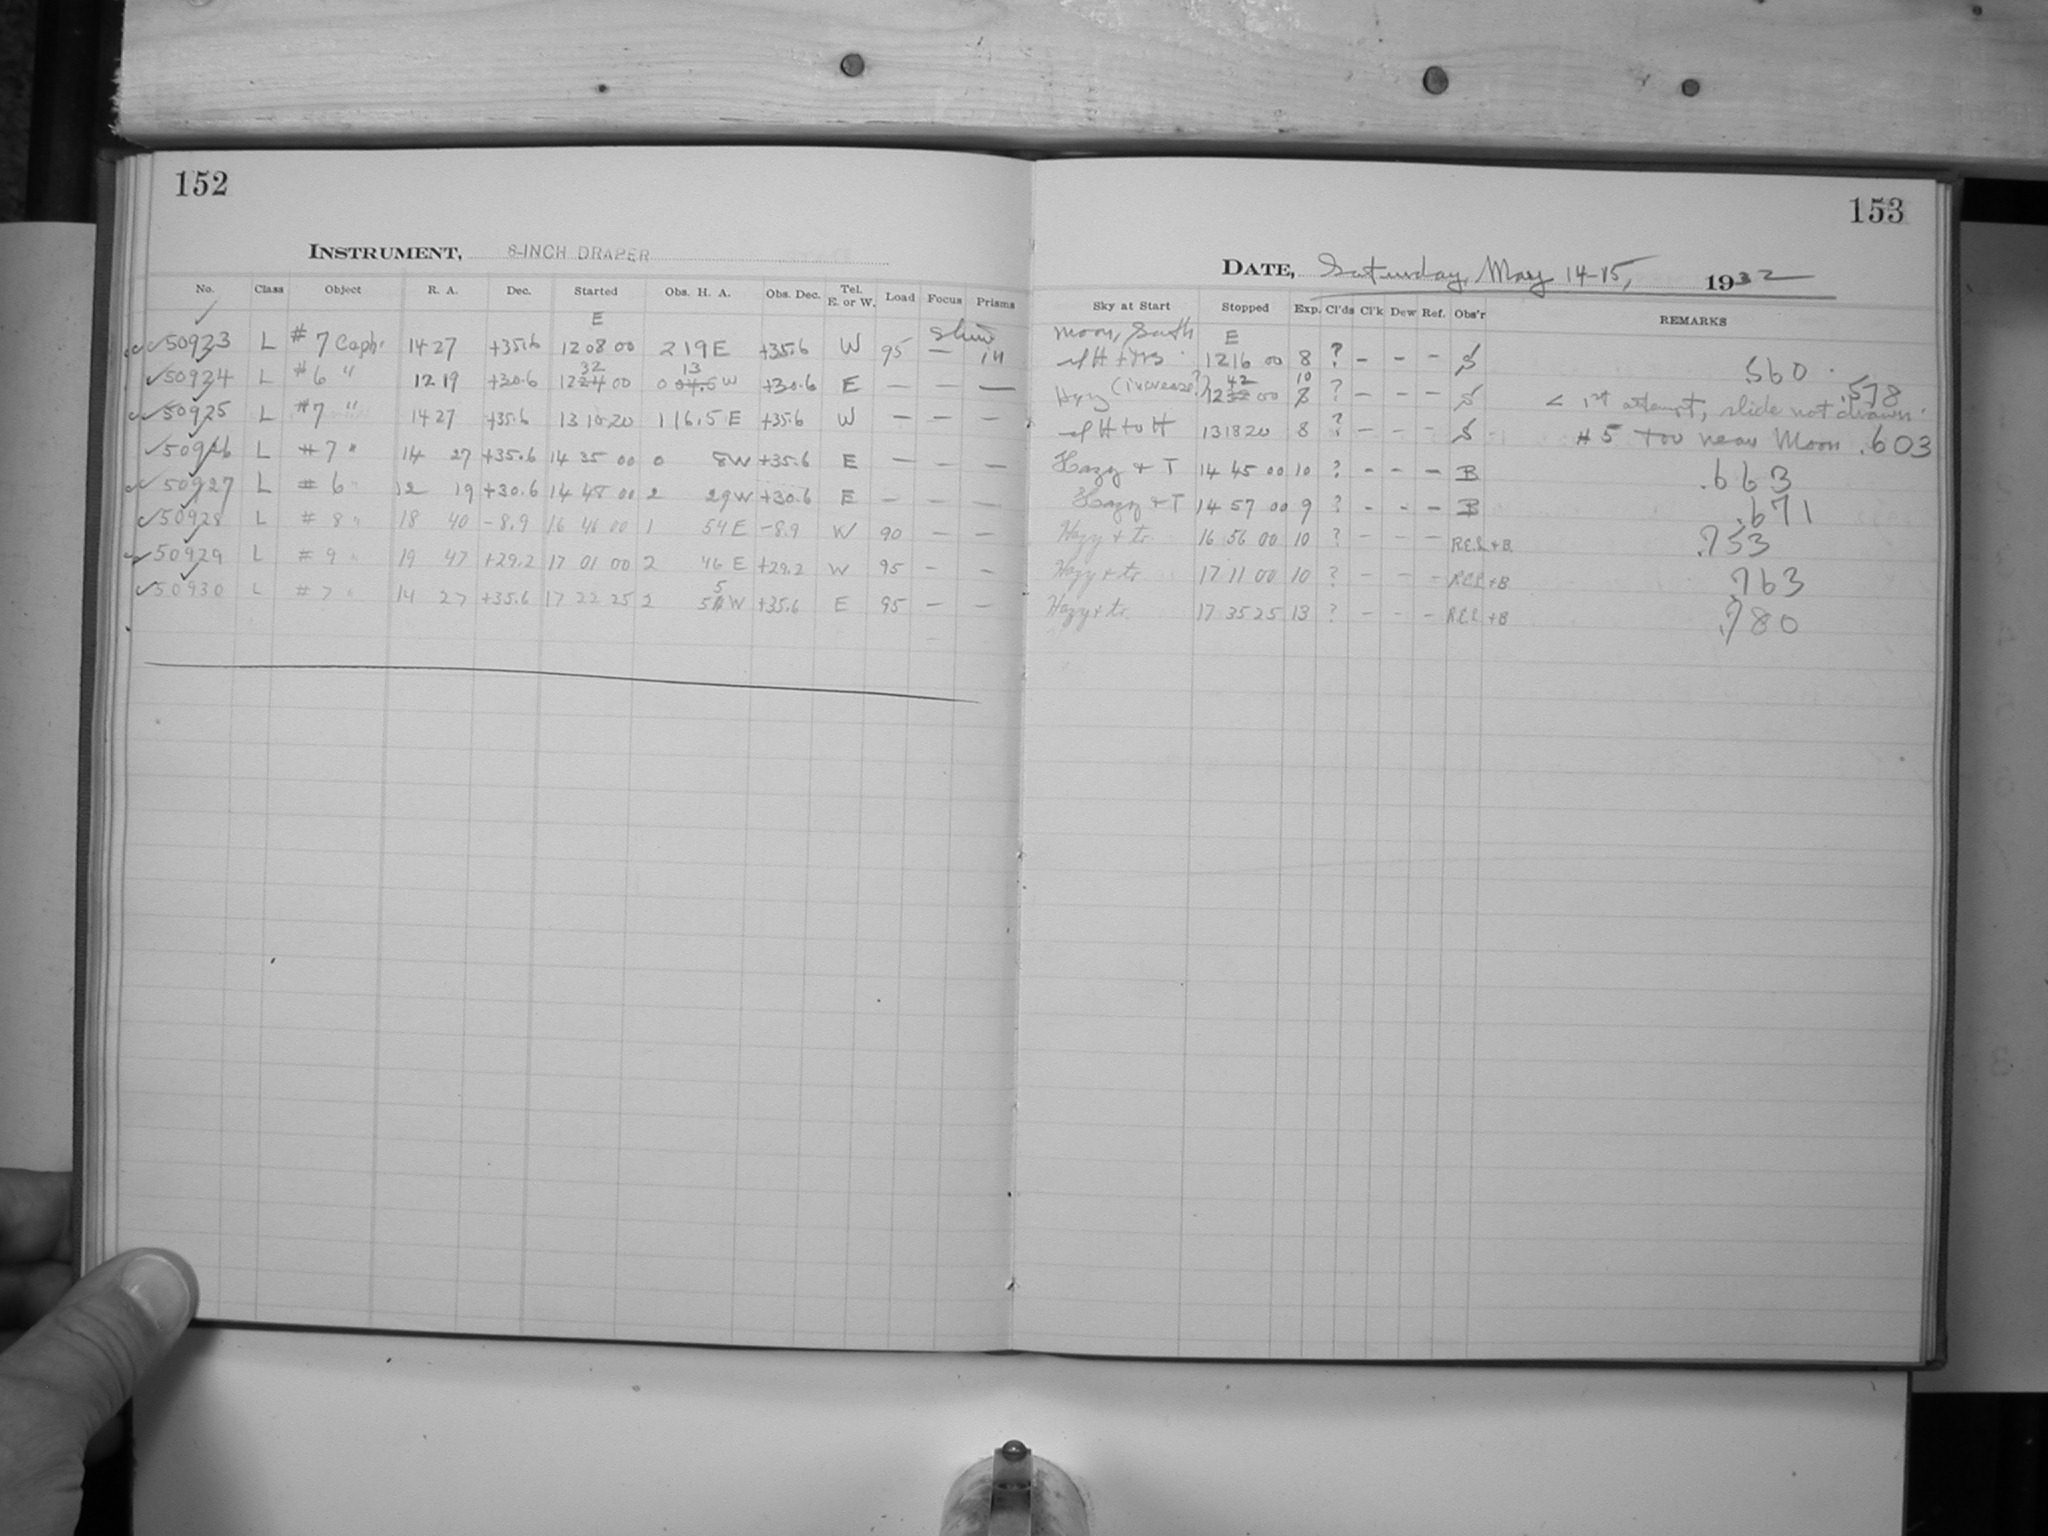 152
INSTRUMENT, 8-INCH DRAPER
No. Class Object R. A. Dec. Started Obs. H. A. Obs. Dec. Tel. E. or W. Load Focus Prisms
E
50923 L # 7 Ceph. 14 27 +35.6 12 08 00 2 19 E +35.6 W 95 — in
32 13
50924 L # 6 " 12 19 +30.6 12 24 00 0 04.5 W +30.6 E — — —
50925 L # 7 " 14 27 +35.6 13 10 20 1 16.5 E +35.6 W — — —
50926 L # 7 " 14 27 +35.6 14 35 00 0 8 W +35.6 E — — —
50927 L # 6 " 12 19 +30.6 14 48 00 2 29 W +30.6 E — — —
50928 L # 8 " 18 40 -8.9 16 46 00 1 54 E -8.9 W 90 — —
50929 L # 9 " 19 47 +29.2 17 01 00 2 46 E +29.2 W 95 — —
5
50930 L # 7 " 14 27 +35.6 17 22 25 2 54 W +35.6 E 95 — —
153
DATE, Saturday, May 14-15, 1932
Sky at Start Stopped Exp. Cl'ds Cl'k Dew Ref. Obs'r REMARKS
Moon, South E
12 16 00 8 ? — — — S .560
42 10
Hazy (increase?) 12 32 00 8 ? — — — S .578
< 1st attempt, slide not drawn.
H to H 13 18 20 8 ? — — — S # 5 too near Moon .603
Hazy + T 14 45 00 10 ? — — — B .663
Hazy + T 14 57 00 9 ? — — — B .671
Hazy + tr. 16 56 00 10 ? — — — R.E.L + B .753
Hazy + tr. 17 11 00 10 ? — — — R.E.L + B .763
Hazy + tr. 17 35 25 13 ? — — — R.E.L + B .780